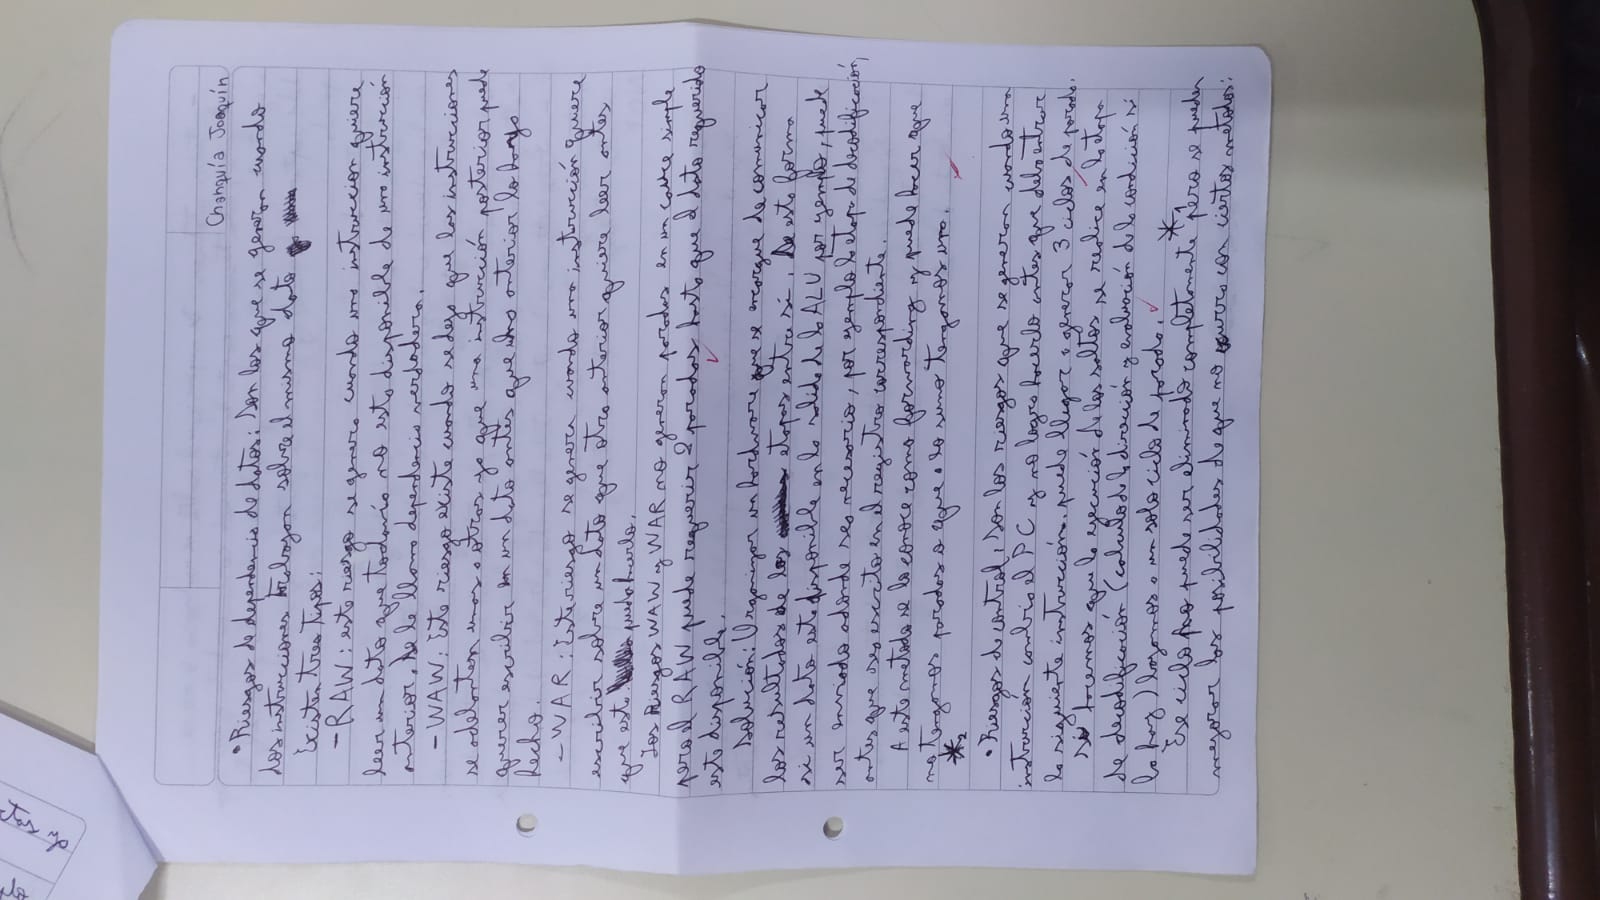 Changuía Joaquín
• Riesgos de dependencia de datos: Son los que se generan cuando
las instrucciones trabajan sobre el mismo dato
Existen tres tipos:
- RAW: este riesgo se genera cuando una instruccion quiere
leer un dato que todavía no esta disponible de una instrucción
anterior, se le llama dependencia verdadera.
- WAW: Este riesgo existe cuando se deja que las instrucciones
se adelanten unas a otras ya que una instrucción posterior puede
querer escribir en un dato antes que una anterior lo haya
hecho.
- WAR: Este riesgo se genera cuando una instrucción quiere
escribir sobre un dato que otra anterior quiere leer antes
que esta pueda hacerlo.
Los Riesgos WAW y WAR no generan paradas en un cauce simple
pero el RAW puede requerir 2 paradas hasta que el dato requerido
este disponible.
Solución: Organizar un hardware que se encargue de comunicar
los resultados de las etapas entre sí. De esta forma
si un dato esta disponible en la salida de la ALU por ejemplo, puede
ser enviado adonde sea necesario, por ejemplo la etapa de decodificación,
antes que sea escrito en el registro correspondiente.
A este metodo se lo conoce como forwarding y puede hacer que
no tengamos paradas o que a lo sumo tengamos una.
*2
• Riesgos de control: Son los riesgos que se generan cuando una
instrucción cambia el PC y no logra hacerlo antes que deba entrar
la siguiente instrucción. puede llegar a generar 3 ciclos de parada.
Si hacemos que la ejecución de los saltos se realice en la etapa
de decodificación (calculo de la dirección y evaluación de la condición si
la hay) bajamos a un solo ciclo de parada.
Ese ciclo no puede ser eliminado completamente *1 pero se pueden
mejorar las posibilidades de que no ocurra con ciertos metodos:
ctas ya